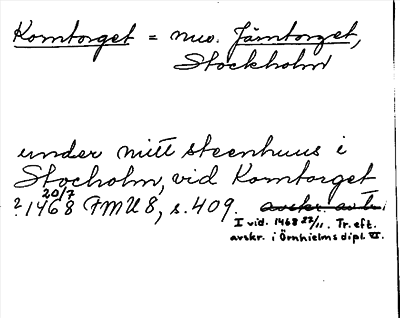 Korntorget = nuv. Järntorget,
Stockholm
under mitt steenhuus i
Stocholm, vid Korntorget
20/7
? 1468 FMU 8, s. 409. avskr. av
I vid. 1468 22/11. Tr. eft.
avskr. i Örnhielms dipl. VI.